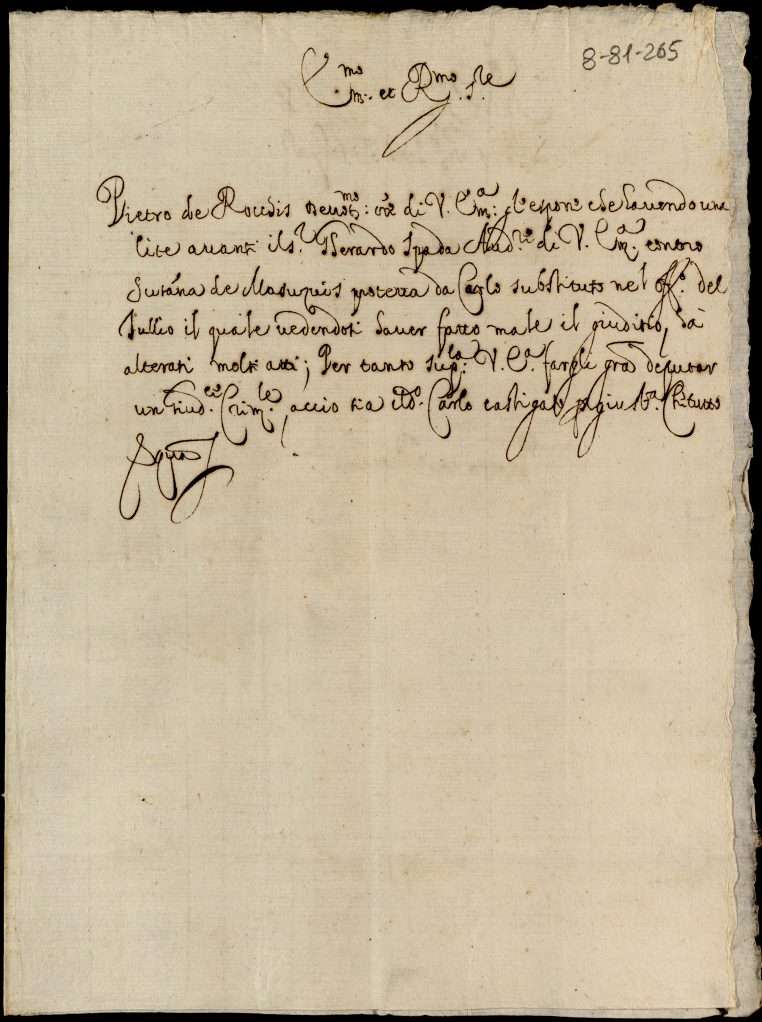 8-81-265
Em.mo et R.mo S.re
Pietro de Rocchis deuot.mo: or.e di V. Em.a: l'espone che hauendo una
lite auanti il S.r Gherardo Spada Aud.re di V. Em.a contro
Sutãna de protetta da Carlo substituto nel off.o del
Tullio il quale uedendosi hauer fatto male il giuditio, hà
alterati molti atti; Per tanto sup.ca: V. E.a fargli gr̃a deputar
un Giud.ce Crim.le, accio sia il d.o Carlo castigato p giust.a Ch tutto